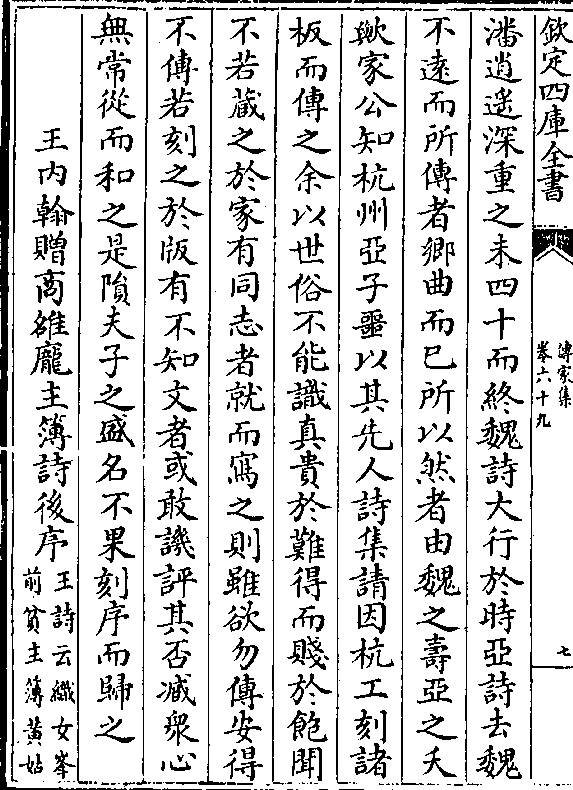 欽定四庫全書
傳家集
卷六十九
七
潘逍遥深重之未四十而終魏詩大行於時亞詩去魏
不遠而所傳者鄉曲而已所以然者由魏之壽亞之夭
歟家公知杭州亞子噩以其先人詩集請因杭工刻諸
板而傳之余以世俗不能識真貴於難得而賤於飽聞
不若蔵之於家有同志者就而寫之則雖欲勿傳安得
不傳若刻之於版有不知文者或敢譏評其否臧衆心
無常從而和之是隕夫子之盛名不果刻序而歸之
王内翰贈商雒龐主簿詩後序
王詩云織女峯
前貧主簿黄姑